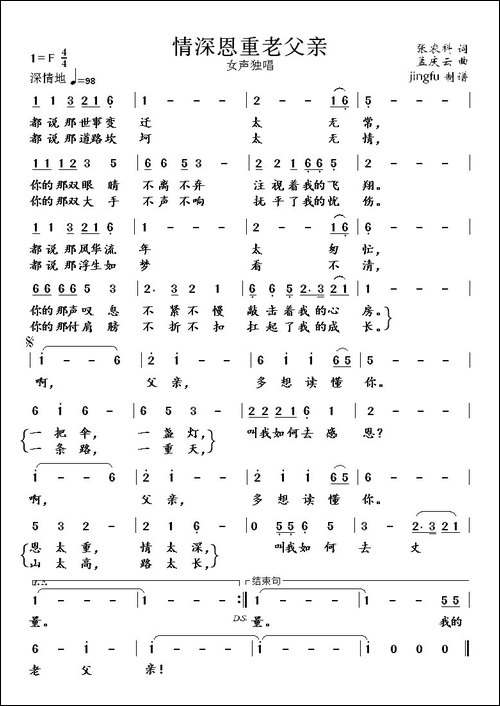 情深恩重老父亲
女声独唱
1=F 4/4
深情地 ♩=98
张农科 词
孟庆云 曲
jingfu 制谱
1 1 3 2 1 6 | 1 - - - | 2 - - 1 6 | 5 - - - |
都说那世事变 迁 太 无 常,
都说那道路坎 坷 太 无 情,
1 1 1 1 2 3 5 | 6 6 5 3 - | 2 2 1 2 6 6 5 | 5 - - - |
你的那双眼 睛 不离不弃 注视着我的飞 翔。
你的那双大 手 不声不响 抚平了我的忧 伤。
1 1 3 2 1 6 | 1 - - - | 2 - - 1 6 | 5 - - - |
都说那风华流 年 太 匆 忙,
都说那浮生如 梦 看 不 清,
6 6 6 6 5 3 5 | 6 6 5 3 - | 5 5 3 5 6 5 | 2· 3 2 - |
你的那声叹 息 不紧不慢 敲击着我的心 房。
你的那付肩 膀 不折不扣 扛起了我的成 长。
1 - - 6 | 2 - 1 - | 2 1 6 1 6 5 | 5 - - - |
啊, 父 亲, 多 想 读 懂 你。
6 1 6 - | 5 3 5 - | 2 2 2 1 6 1 | 2 - - - |
一 把 伞, 一 盏 灯, 叫我如何去 感 恩?
一 条 路, 一 重 天,
1 - - 6 | 2 - 1 - | 2 1 6 5 5 | 5 - - - |
啊, 父 亲, 多 想 读 懂 你。
5 3 5 - | 2 1 6 - | 0 5 5 5 6 3 | - 2· 3 2 1 |
恩 太 重, 情 太 深, 叫我如何 去 丈
山 太 高, 路 太 长,
结束句
1 - - - | 1 - - - :‖ 1 - - - | 1 - - 5 5 |
量。 D.S. 量。 我的
6 - 1 - | 1 - - - | 1 - - - | 1 0 0 0 ‖
老 父 亲!